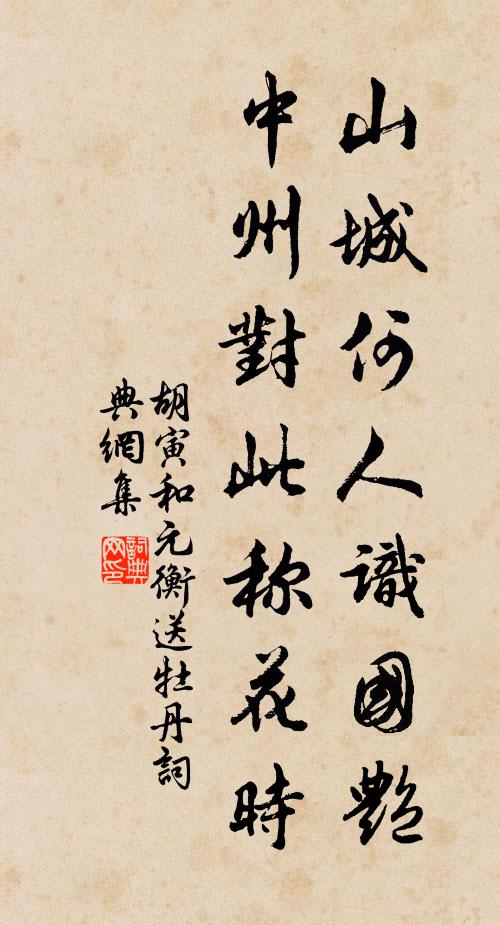 山城何人識國艷
中州對此称花時
胡寅和元衡送牡丹詞
典網集
詞典網印